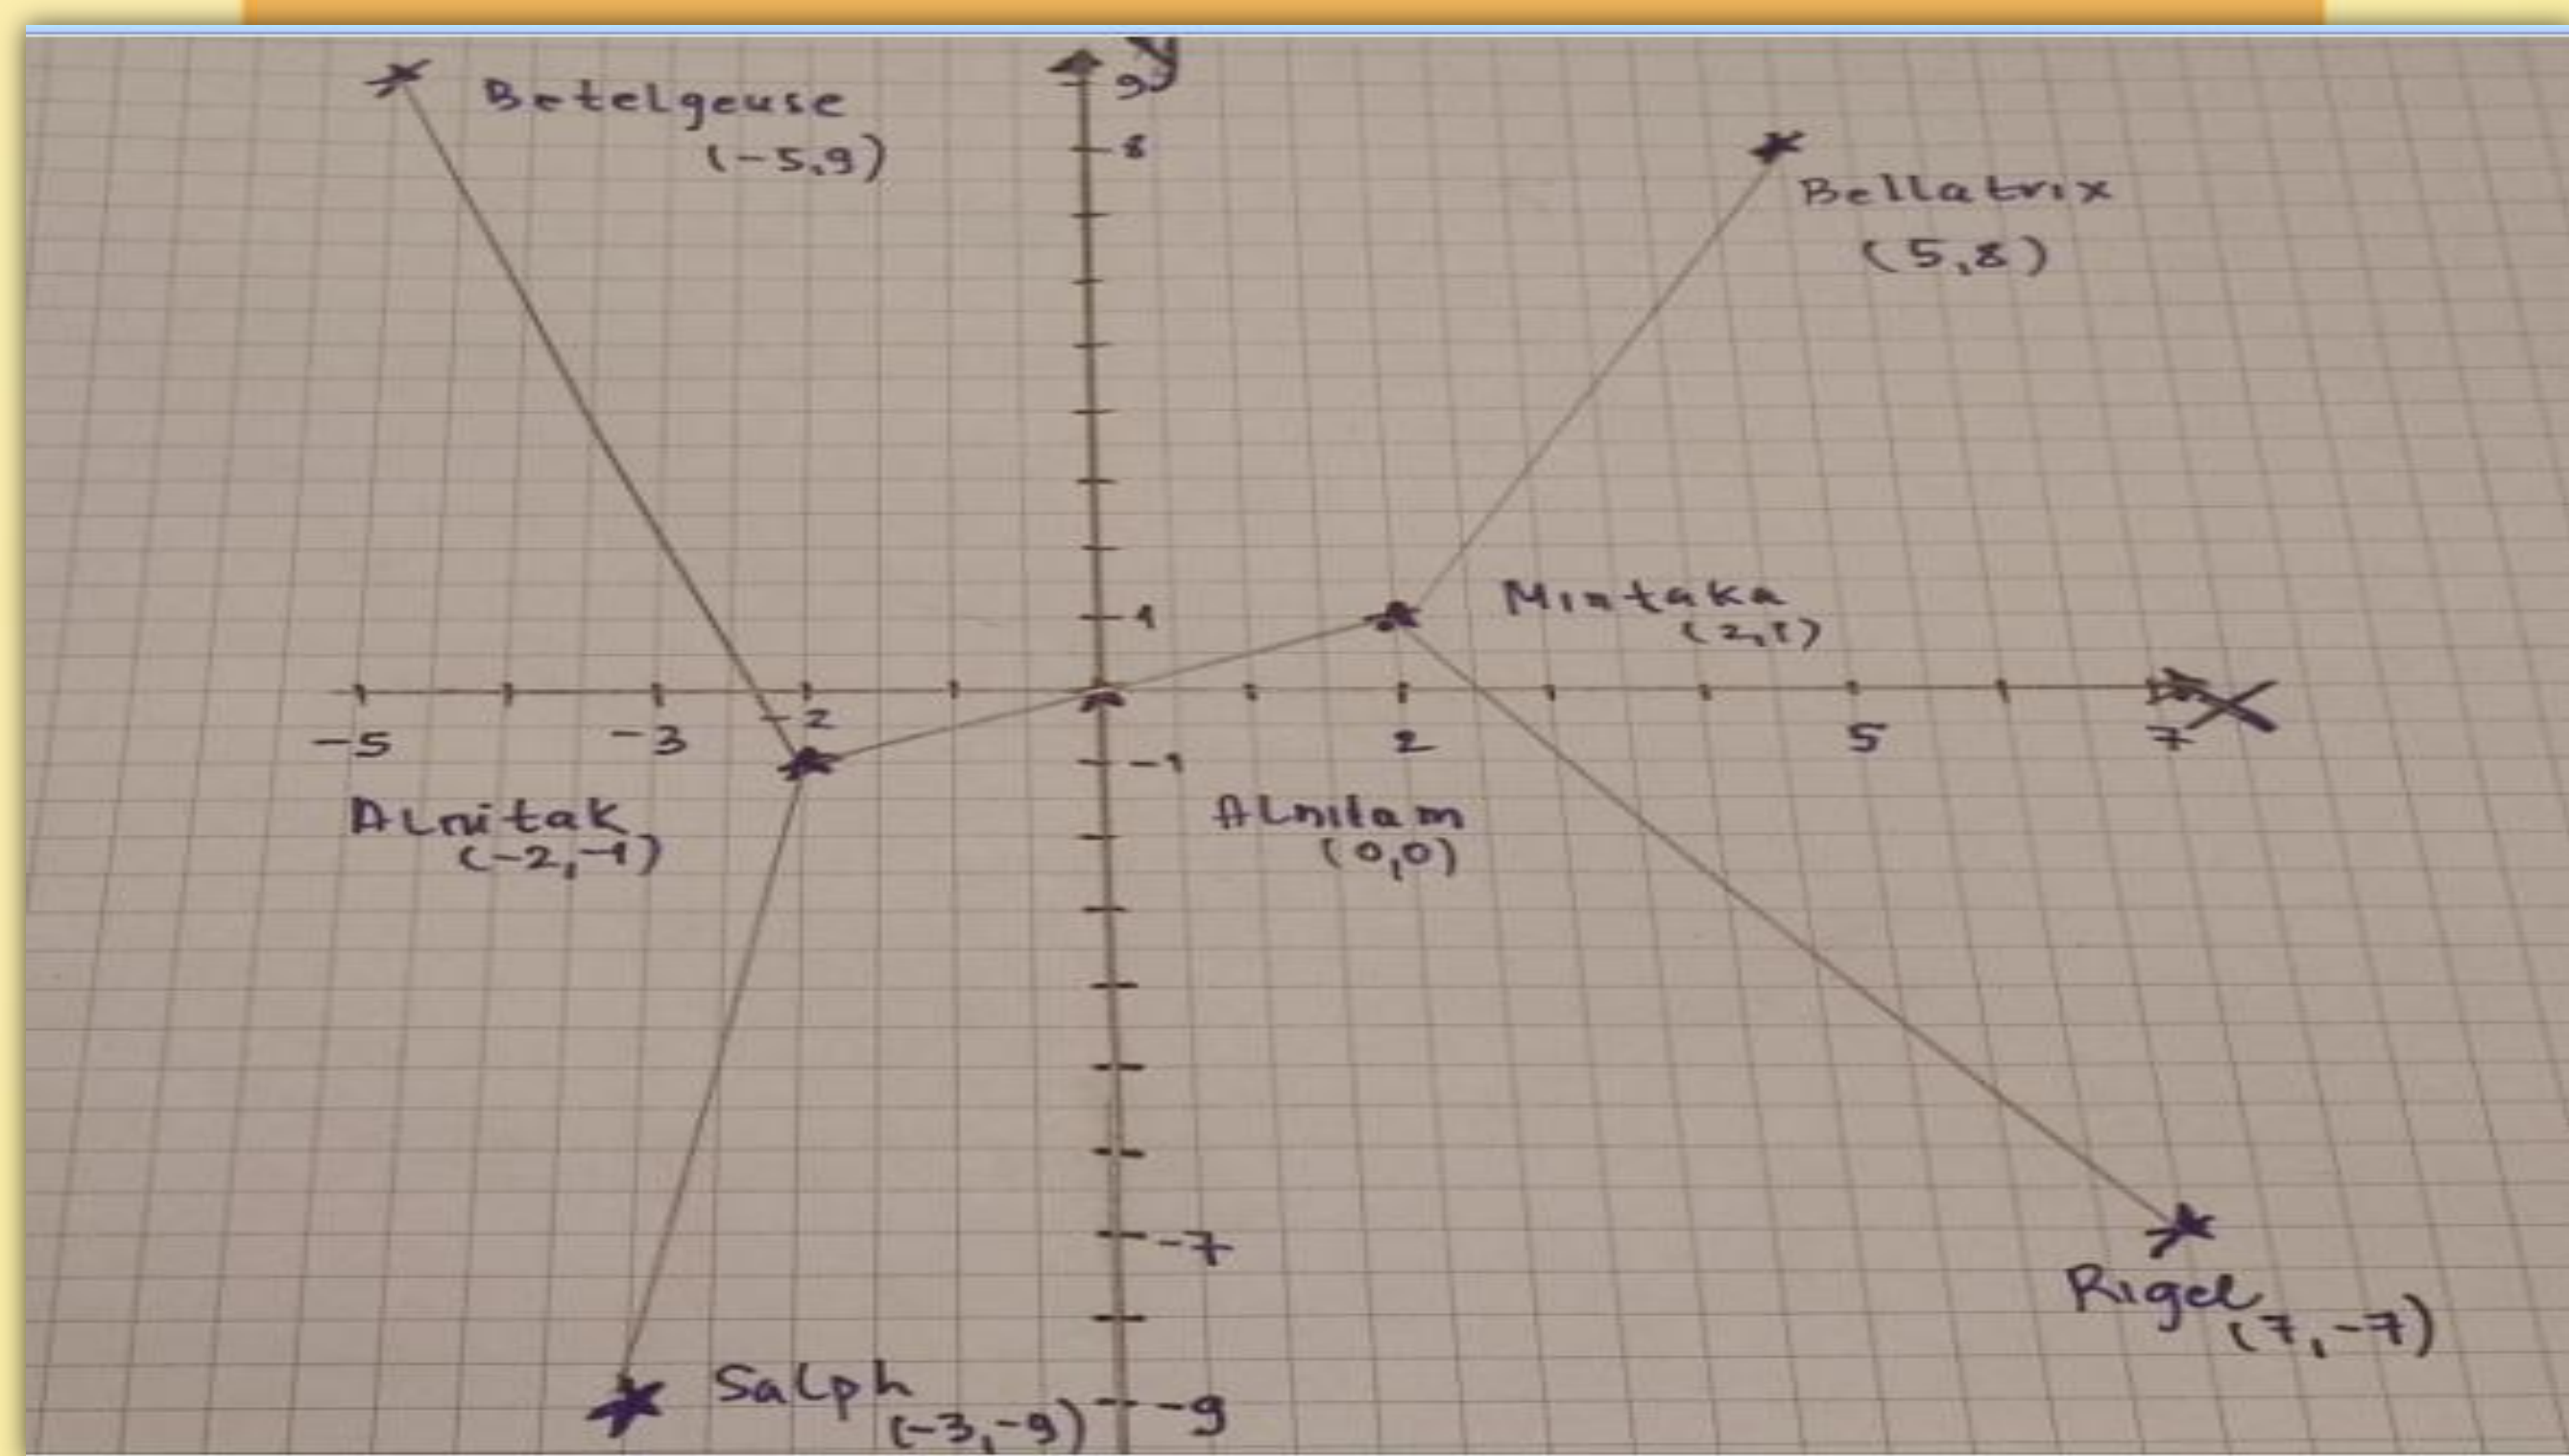 y
9
Betelgeuse
(-5,9)
8
Bellatrix
(5,8)
Mintaka
(2,1)
1
-5
-3
-2
2
5
7
X
-1
Alnitak
(-2,-1)
Alnilam
(0,0)
-7
Rigel
(7,-7)
Salph
(-3,-9)
-9